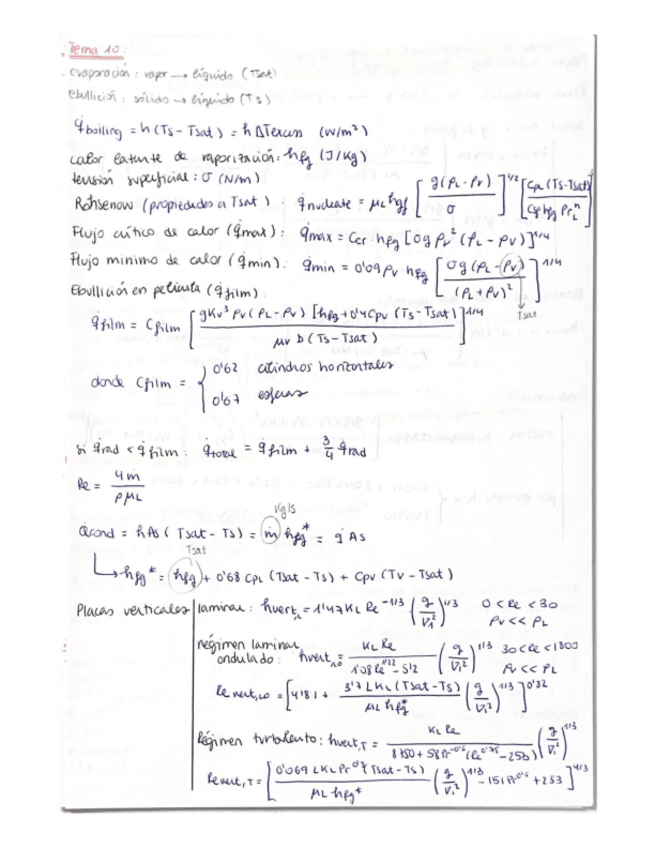 Tema 10:
evaporación: vapor → líquido (Tsat)
Ebullición: sólido → líquido (Ts)
q̇boiling = h(Ts - Tsat) = hΔTexces (W/m²)
calor latente de vaporización: hfg (J/Kg)
tensión superficial: σ (N/m)
Rohsenow (propiedades a Tsat): q̇nucleate = μL hgf [g(ρL - ρv) / σ]^1/2 [CpL(Ts-Tsat) / Csf hfg PrL^n]^3
Flujo crítico de calor (q̇max): q̇max = Ccr · hfg [σg ρv² (ρL - ρv)]^1/4
Flujo mínimo de calor (q̇min): q̇min = 0'09 ρv · hfg [σg(ρL - ρv) / (ρL + ρv)²]^1/4
Tsat
Ebullición en película (q̇film):
q̇film = Cfilm [gKv³ ρv(ρL - ρv)[hfg + 0'4Cpv(Ts - Tsat)] / μv D(Ts - Tsat)]^1/4
donde Cfilm = { 0'62 cilindros horizontales
0'67 esferas
si q̇rad < q̇film: q̇total = q̇film + 3/4 q̇rad
Re = 4ṁ / ρμL
Kg/s
Q̇cond = hAs(Tsat - Ts) = ṁ hfg* = q̇ As
Tsat
↳ hfg* = hfg + 0'68 CpL (Tsat - Ts) + Cpv (Tv - Tsat)
Placas verticales | laminar: hvert = 1'47 KL Re^-1/3 (g / ν²)^1/3 0 < Re < 30
ρv << ρL
régimen laminar
ondulado: hvert,LO = KL Re / 1'08 Re^1'22 - 5'2 (g / ν²)^1/3 30 < Re < 1800
ρv << ρL
Re vert,LO = [4'81 + 3'7 L KL (Tsat - Ts) / μL hfg* (g / ν²)^1/3]^0'82
Régimen turbulento: hvert,T = KL Re / 8750 + 58Pr^-0'5 (Re^0'75 - 253) (g / ν²)^1/3
Revert,T = [0'069 L KL Pr^0'5 (Tsat - Ts) / μL hfg* (g / ν²)^1/3 - 151 Pr^0'5 + 253]^4/3